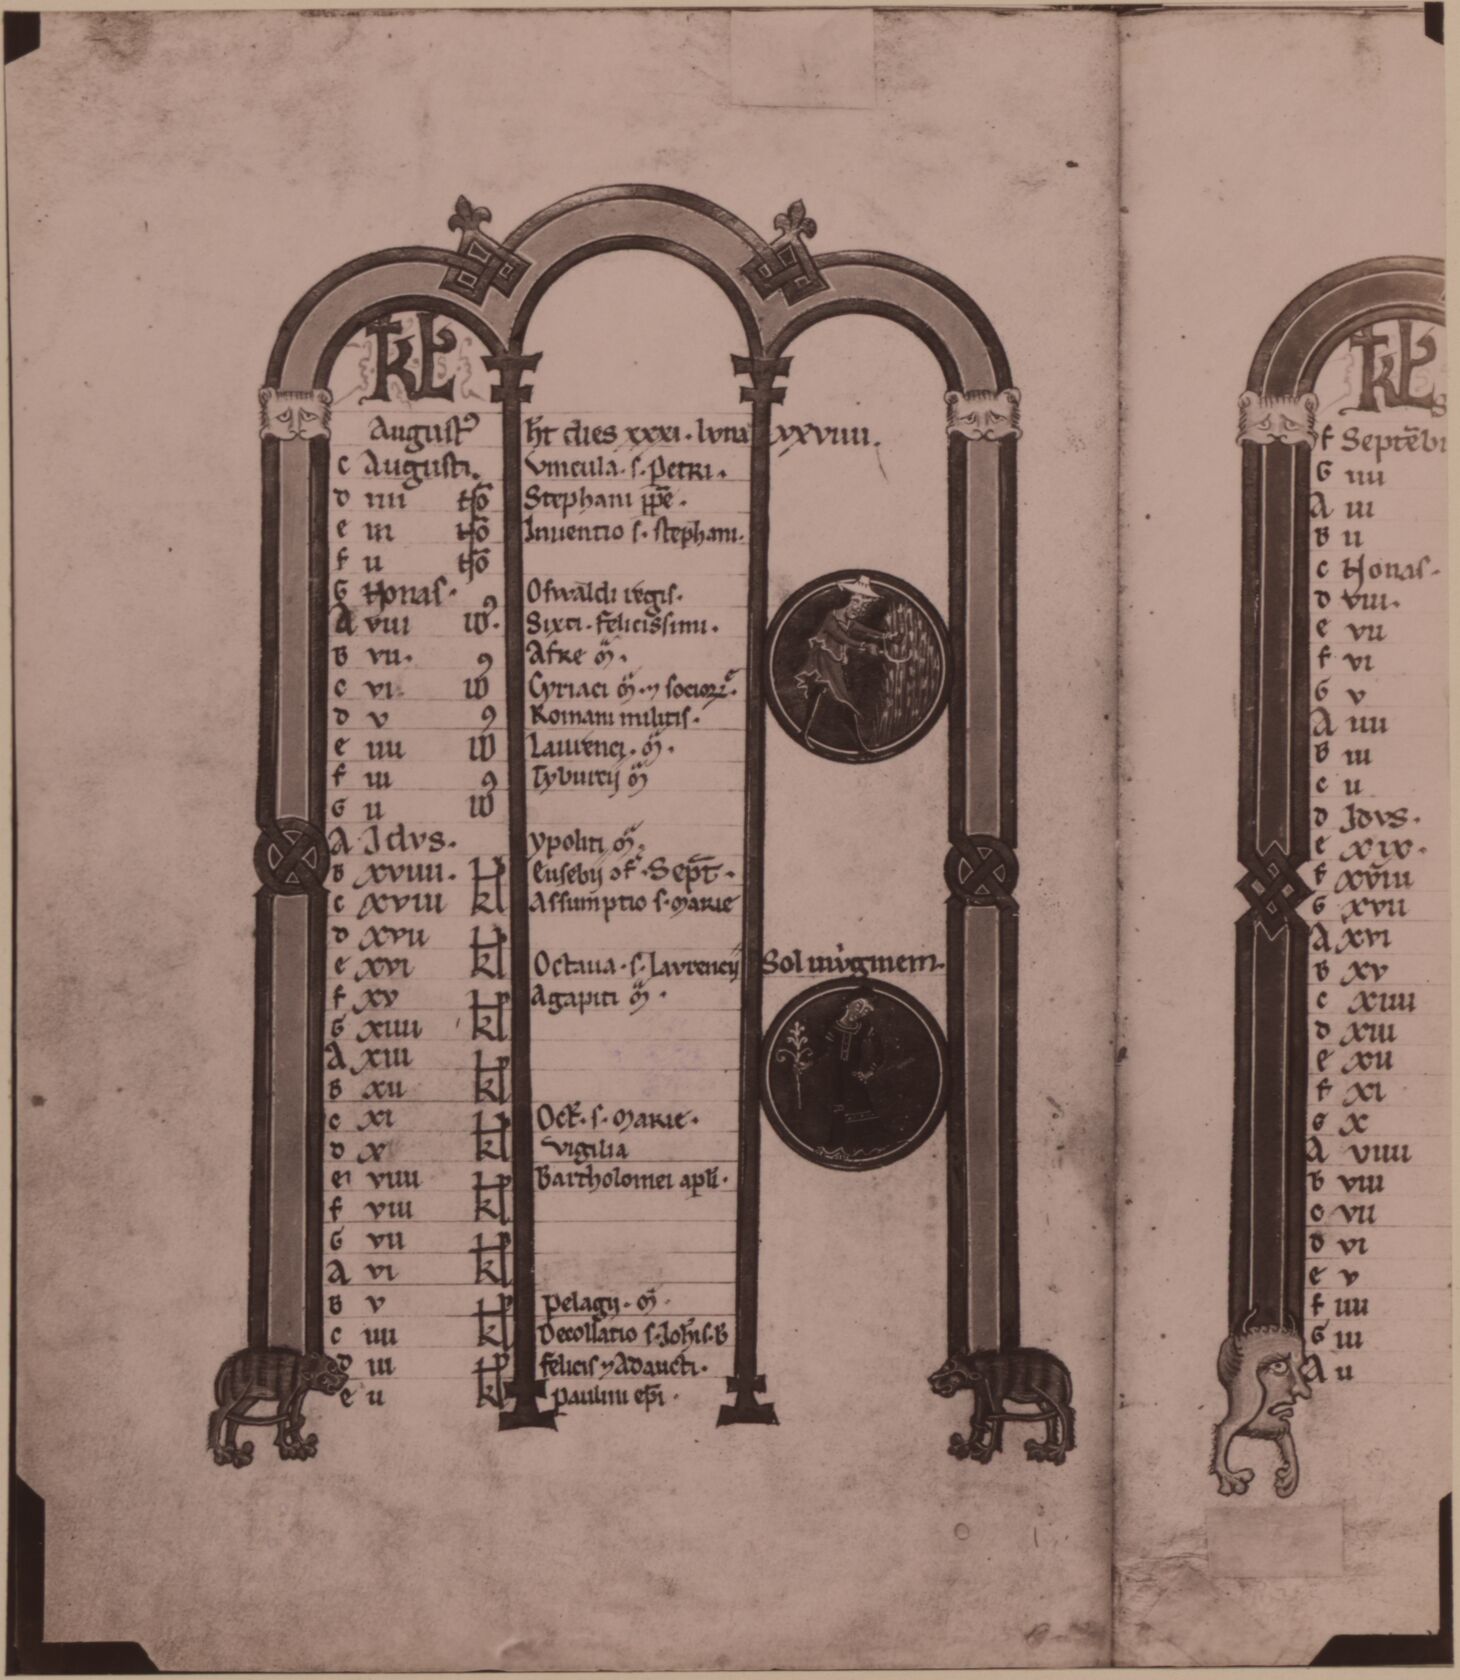 KL
Augustꝰ h̄t dies xxxi. luna xxviiii.
c Augusti. Vincula. s. Petri.
d iiii No Stephani pp̄e.
e iii No Inuentio s. stephani.
f ii No
G Nonas. Oswaldi regis.
A viii Idꝰ. Sixti. felicissimi.
B vii. Afre m̄.
c vi Idꝰ Cyriaci m̄. ⁊ socior̄.
d v Romani militis.
e iiii Idꝰ Laurenci. m̄.
f iii Tyburcij m̄
G ii Idꝰ
A Idvs. Ypoliti m̄.
B xviiii. kl Eusebij ꝯf. Sept̄.
c xviii kl Assumptio s. marie
d xvii
e xvi kl Octaua. s. Laurencij Sol in uirginem.
f xv Agapiti m̄.
G xiiii kl
A xiii
B xii kl
c xi Oct̄. s. marie.
d x kl vigilia
e viiii Bartholomei apl̄i.
f viii kl
G vii
A vi kl
B v Pelagij. m̄
c iiii kl Decollatio s. Joh̄is. B
d iii felicis ⁊ Adaucti.
e ii kl paulini ep̄i.
KL
f Septēbr
G iiii
A iii
B ii
c Nonas.
d viii.
e vii
f vi
G v
A iiii
B iii
c ii
d Idvs.
e xix.
f xviii
G xvii
A xvi
B xv
c xiiii
d xiii
e xii
f xi
G x
A viiii
B viii
c vii
d vi
e v
f iiii
G iii
A ii